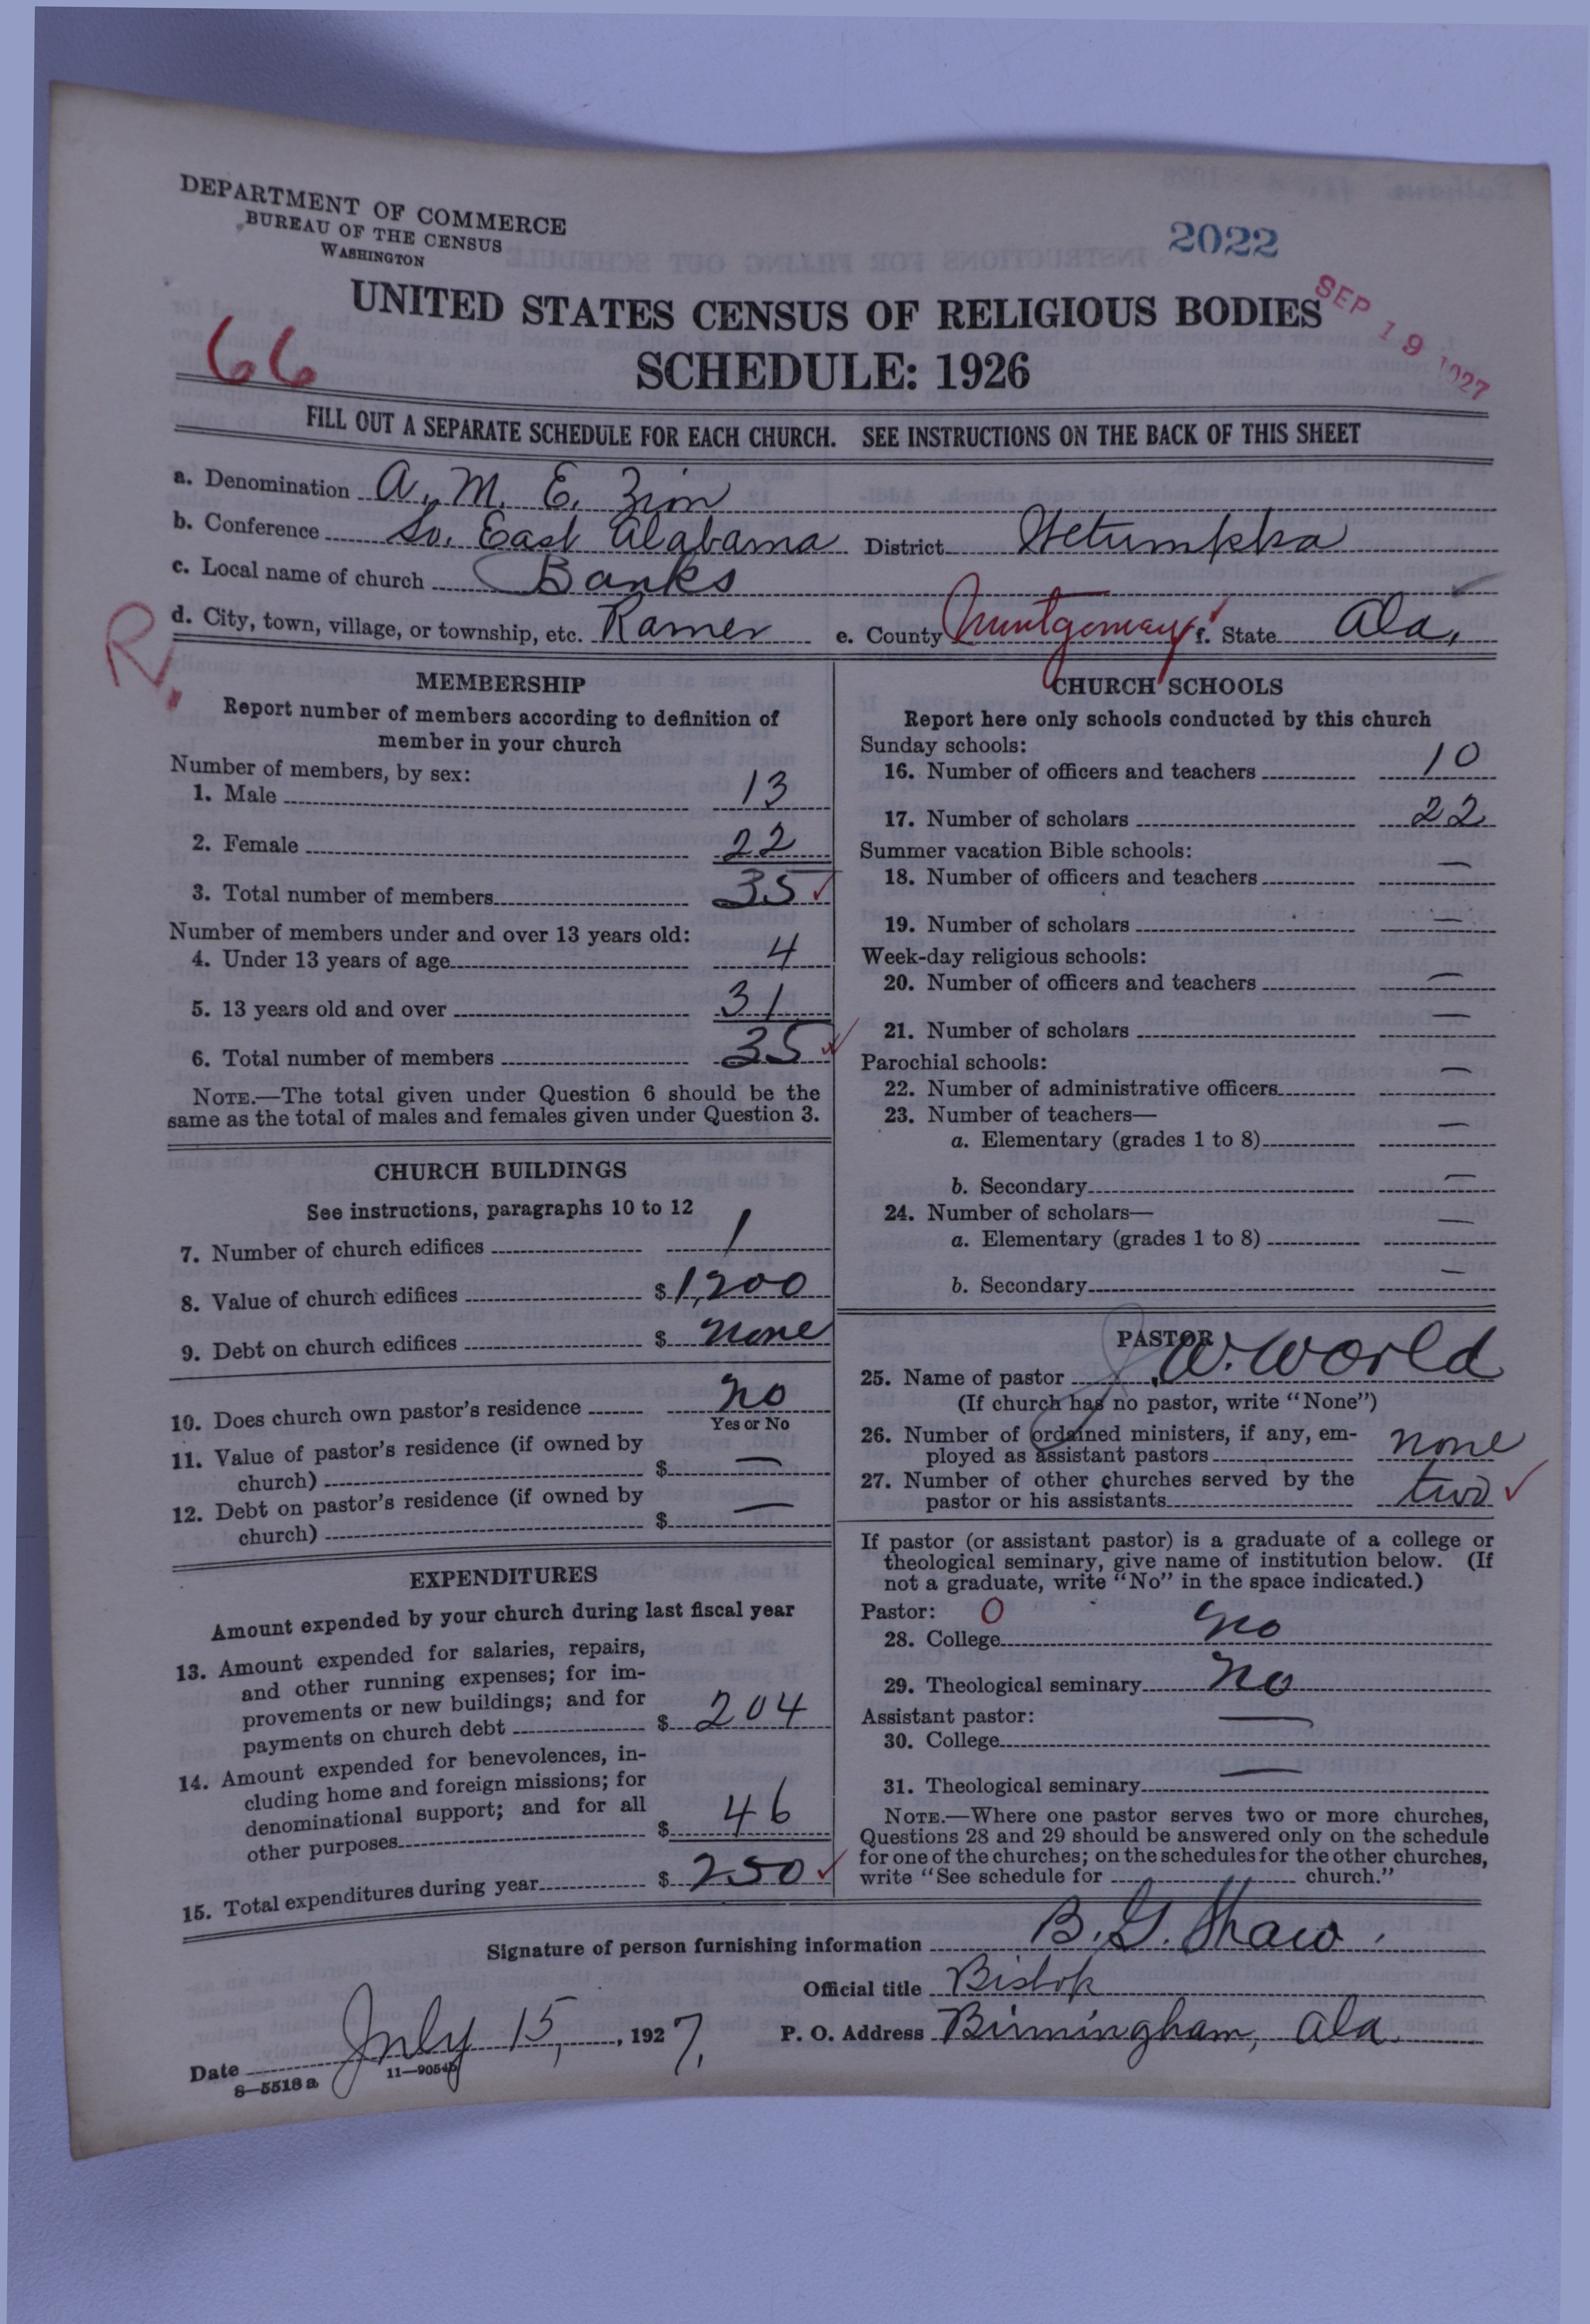 DEPARTMENT OF COMMERCE
BUREAU OF THE CENSUS
WASHINGTON
2022
SEP 19 1927
UNITED STATES CENSUS OF RELIGIOUS BODIES
66
SCHEDULE: 1926
FILL OUT A SEPARATE SCHEDULE FOR EACH CHURCH. SEE INSTRUCTIONS ON THE BACK OF THIS SHEET
a. Denomination A. M. E. Zion
b. Conference So. East Alabama District Wetumpka
c. Local name of church Banks
R.
d. City, town, village, or township, etc. Ramer e. County Montgomery f. State Ala.
MEMBERSHIP
Report number of members according to definition of
member in your church
Number of members, by sex:
1. Male 13
2. Female 22
3. Total number of members 35
Number of members under and over 13 years old:
4. Under 13 years of age 4
5. 13 years old and over 31
6. Total number of members 35
NOTE.—The total given under Question 6 should be the
same as the total of males and females given under Question 3.
CHURCH BUILDINGS
See instructions, paragraphs 10 to 12
7. Number of church edifices 1
8. Value of church edifices $1,200
9. Debt on church edifices $ none
10. Does church own pastor's residence no
Yes or No
11. Value of pastor's residence (if owned by
church) $ —
12. Debt on pastor's residence (if owned by
church) $ —
EXPENDITURES
Amount expended by your church during last fiscal year
13. Amount expended for salaries, repairs,
and other running expenses; for im-
provements or new buildings; and for
payments on church debt $ 204
14. Amount expended for benevolences, in-
cluding home and foreign missions; for
denominational support; and for all
other purposes $ 46
15. Total expenditures during year $ 250
CHURCH SCHOOLS
Report here only schools conducted by this church
Sunday schools:
16. Number of officers and teachers 10
17. Number of scholars 22
Summer vacation Bible schools:
18. Number of officers and teachers —
19. Number of scholars —
Week-day religious schools:
20. Number of officers and teachers —
21. Number of scholars —
Parochial schools:
22. Number of administrative officers —
23. Number of teachers—
a. Elementary (grades 1 to 8) —
b. Secondary —
24. Number of scholars—
a. Elementary (grades 1 to 8) —
b. Secondary —
PASTOR
25. Name of pastor J. W. World
(If church has no pastor, write "None")
26. Number of ordained ministers, if any, em-
ployed as assistant pastors none
27. Number of other churches served by the
pastor or his assistants two
If pastor (or assistant pastor) is a graduate of a college or
theological seminary, give name of institution below. (If
not a graduate, write "No" in the space indicated.)
Pastor: 0
28. College no
29. Theological seminary no
Assistant pastor:
30. College —
31. Theological seminary —
NOTE.—Where one pastor serves two or more churches,
Questions 28 and 29 should be answered only on the schedule
for one of the churches; on the schedules for the other churches,
write "See schedule for church."
Signature of person furnishing information B. G. Shaw
Official title Bishop
Date July 15, 1927. P. O. Address Birmingham, Ala.
8—5518 a 11—9054b